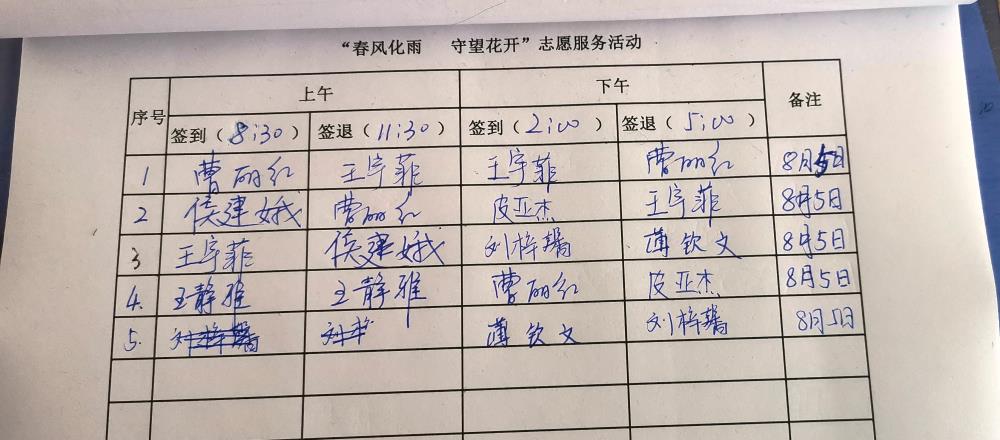 “春风化雨 守望花开”志愿服务活动
序号 上午 下午 备注
签到（8:30） 签退（11:30） 签到（2:00） 签退（5:00）
1 曹丽红 王宇菲 王宇菲 曹丽红 8月5日
2 侯建娥 曹丽红 皮亚杰 王宇菲 8月5日
3 王宇菲 侯建娥 刘梓 薄钦文 8月5日
4. 王静雅 王静雅 曹丽红 皮亚杰 8月5日
5. 薄钦文 刘梓 8月5日